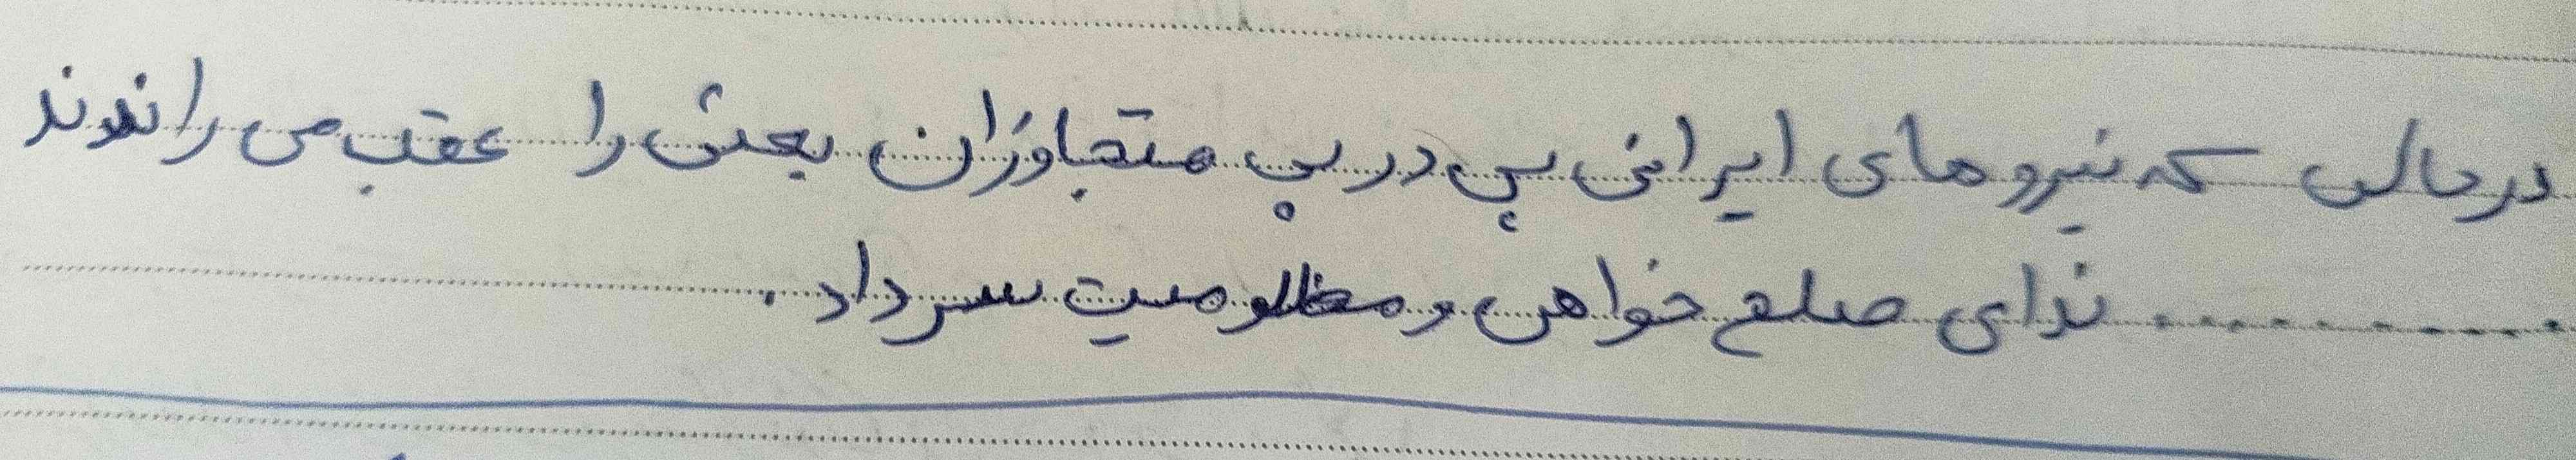 در حالی که نیروهای ایرانی پی در پی متجاوزان بعثی را عقب می راندند
............ ندای صلح خواهی و مظلومیت سر داد.